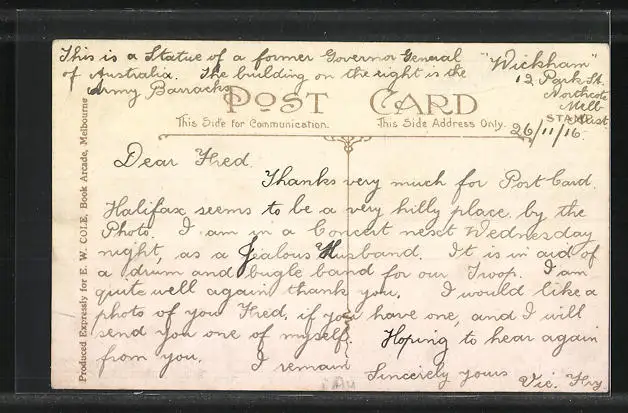 This is a Statue of a former Governor General
of Australia. The building on the right is the
Army Barracks
"Wickham"
12 Park St.
Northcote
Melb
Aust.
26/11/16.
POST CARD
This Side for Communication.
This Side Address Only.
STAMP
Produced Expressly for E. W. COLE, Book Arcade, Melbourne
Dear Fred.
Thanks very much for Post Card.
Halifax seems to be a very hilly place by the
Photo. I am in a Concert next Wednesday
night, as a Jealous Husband. It is in aid of
a drum and bugle band for our Troop. I am
quite well again thank you. I would like a
photo of you Fred, if you have one, and I will
send you one of myself. Hoping to hear again
from you. I remain
Sincerely yours
Vic.